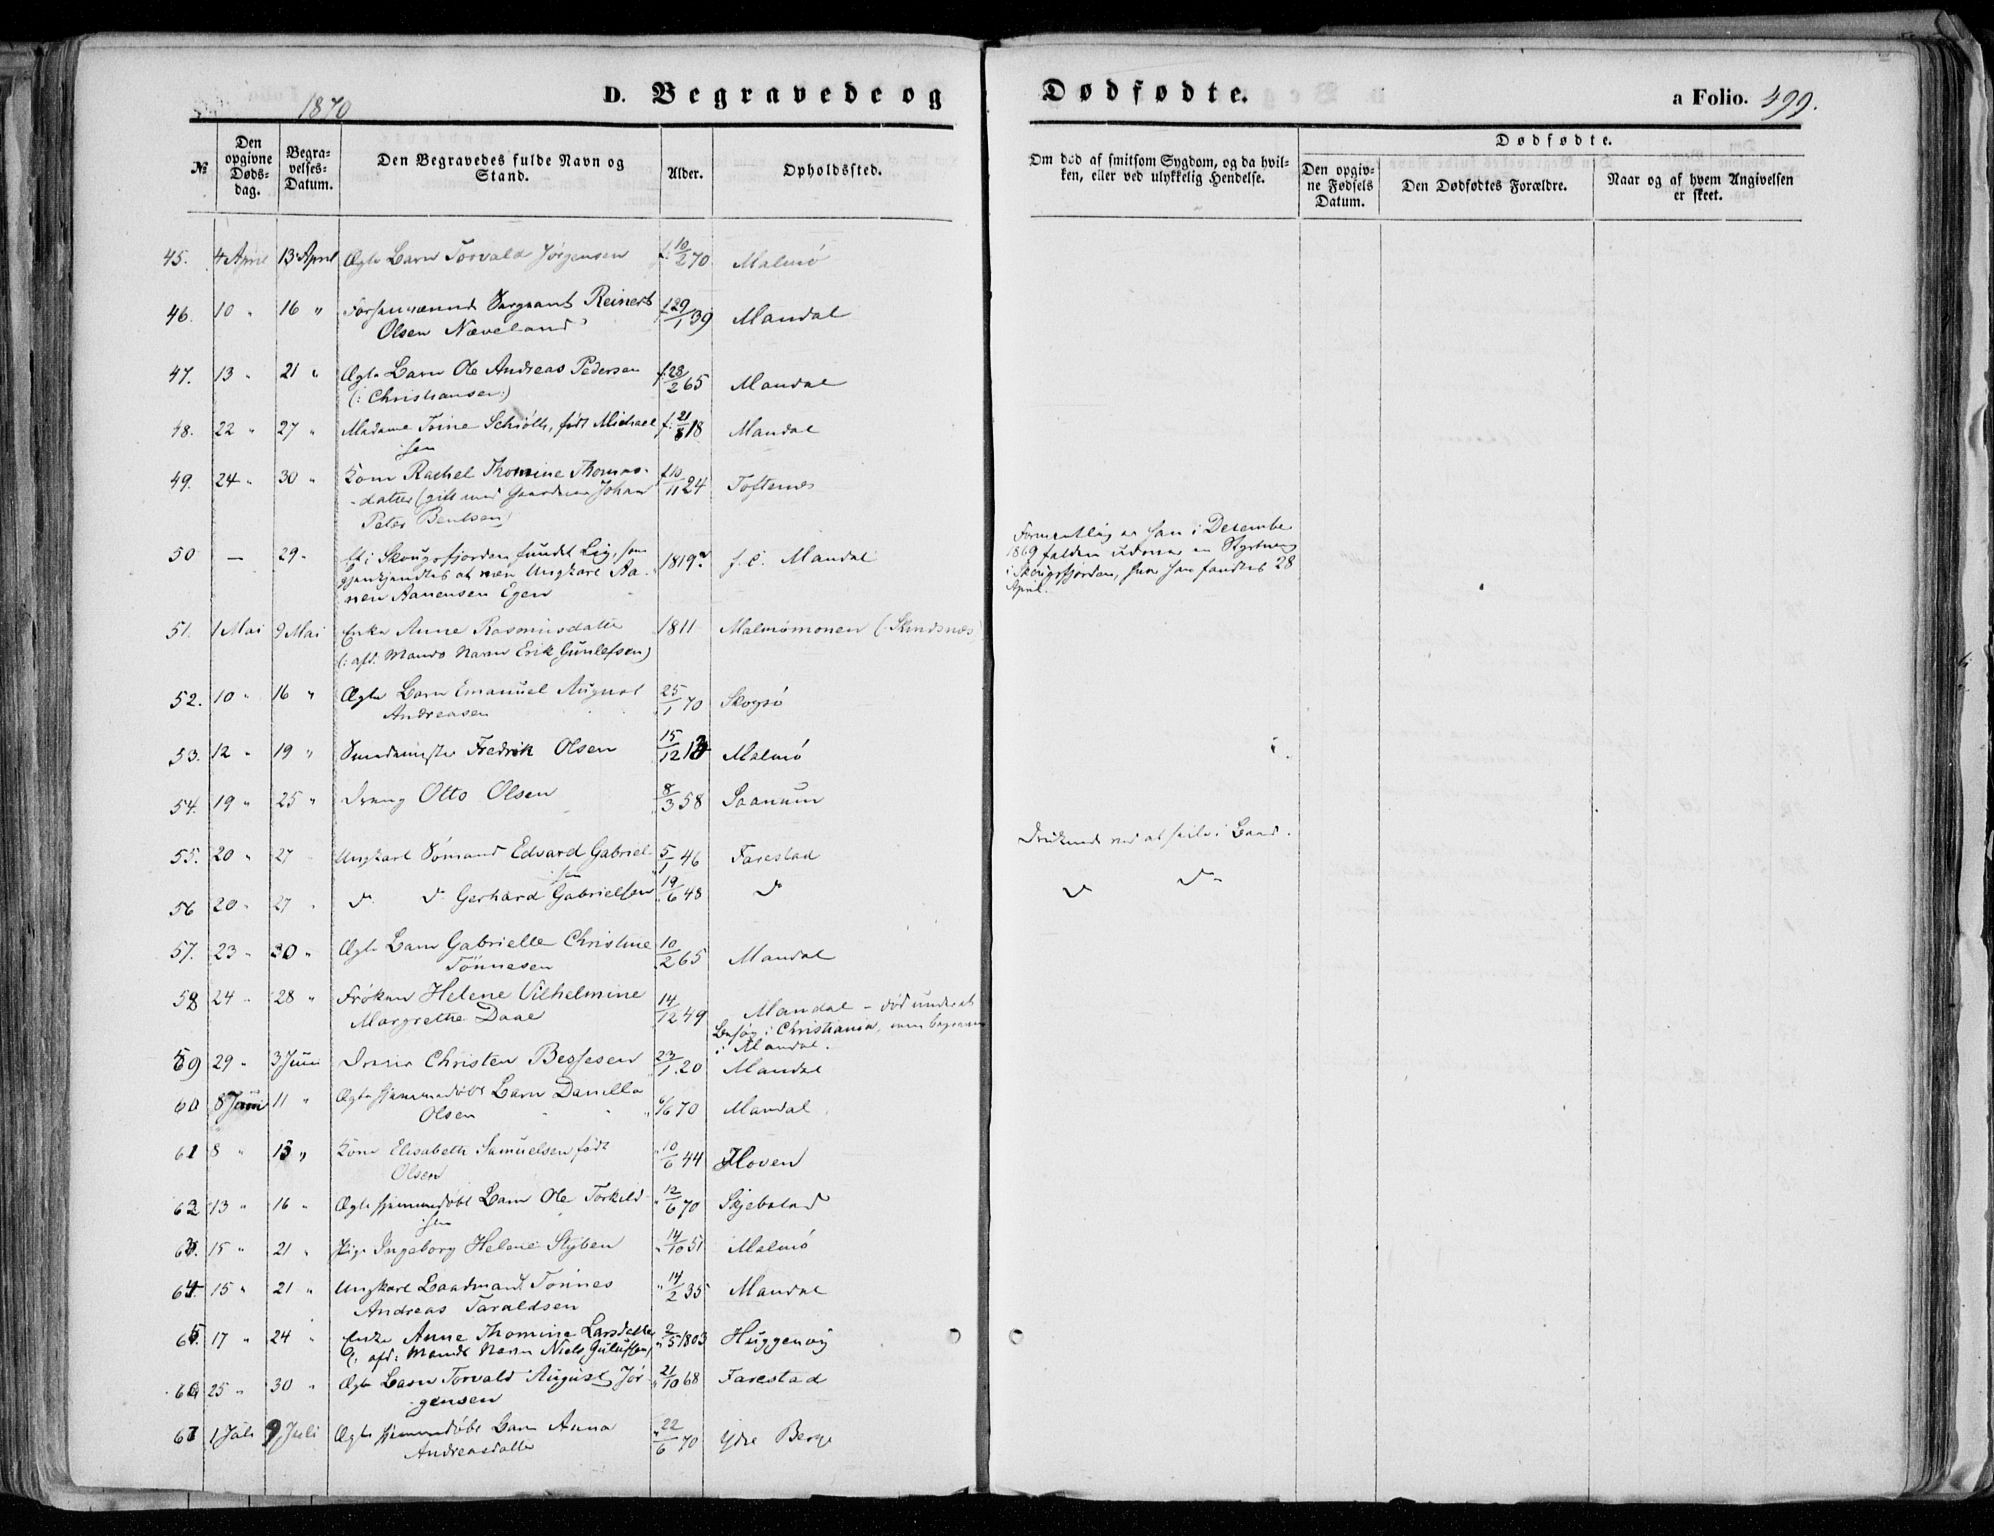 1870
D. Begravede og Dødfødte.
a Folio. 499.
№
Den opgivne Døds-dag.
Begra-velses-Datum.
Den Begravedes fulde Navn og Stand.
Alder.
Opholdssted.
Om død af smitsom Sygdom, og da hvil-
ken, eller ved ulykkelig Hendelse.
Dødfødte.
Den opgiv-ne Fødsels Datum.
Den Dødfødtes Forældre.
Naar og af hvem Angivelsen er skeet.
45. 4 April 13 April Ægte Barn Torvald Jørgensen f. 10/2 70 Malmø
46. 10 " 16 " Sergeant Reinert f 29/1 39 Mandal
Olsen Næveland
47. 13 " 21 " Ægte Barn Ole Andreas Pedersen f. 28/2 65 Mandal
(: Christiansen :)
48. 22 " 27 " Madame Toine Schiøtt, født Michael f. 21/8 18 Mandal
sen
49. 24 " 30 " Kone Rachel Thomine Thomas- f 10/11 24 Toftenes
datter (gift med Johan
Peter Bentsen)
50 — 29 " Et i Skougsfjorden fundet Lig, som 1819? f. e. Mandal
gjenkjendtes at være Ungkarl Aa-
nen Aanensen Egen
Formentlig er han i Decembe
1869 falden ud
i Skougsfjorden, hvor han fandtes 28
April.
51. 1 Mai 9 Mai Enke Anne Rasmusdatter 1811 Malmømonen (Sandsnes)
(: afd. Mands Navn Erik Gunlefsen)
52. 10 " 16 " Ægte Barn Emanuel August 25/1 70 Skogsø
Andreasen
53. 12 " 19 " Smedemester Fredrik Olsen 15/12 13 Malmø
54. 19 " 25 " Dreng Otto Olsen 8/3 58 Saanum
55. 20 " 27 Ungkarl Sømand Edvard Gabriel- 5/1 46 Farestad Druknede ved at seile i Baad.
sen
56 20 " 27 " do do Gerhard Gabrielsen 19/6 48 do do do
57. 23 " 30 " Ægte Barn Gabrielle Christine 10/2 65 Mandal
Tönnesen
58 24 " 28 " Frøken Helene Vilhelmine 14/12 49 Mandal - død under et
Margrethe Daae Besøg i Christiania, men begraven
i Mandal.
59 29 " 3 Juni Christen Bessesen 23/1 20 Mandal
60 8 Juni 11 " Ægte hjemmedøbt Barn Danilla 6/6 70 Mandal
Olsen
61 8 " 15 " Kone Elisabeth Samuelsen født 10/6 44 Hoven
Olsen
62 13 " 16 " Ægte hjemmedøbt Barn Ole Torkild- 12/6 70 Skjebstad
sen
63. 15 " 21 " Pige Ingeborg Helene Styben 14/10 51 Malmø
64. 15 " 21 " Ungkarl Baadmand Tönnes 14/2 35 Mandal
Andreas Taraldsen
65. 17 " 24 " Enke Anne Thomine Larsdatter 2/5 1803 Huggenvig
(: afd: Mands Navn Niels Gulufsen)
66 25 " 30 " Ægte Barn Torvald August Jør- 21/10 68 Farestad
gensen
67 1 Juli 9 Juli Ægte hjemmedøbt Barn Anna 22/6 70 Ydre Berge
Andreasdatter